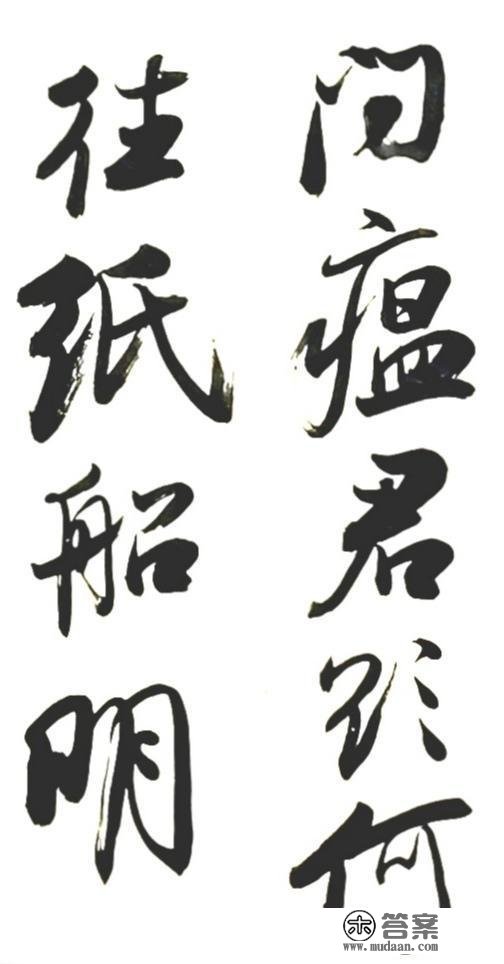 问瘟君欲何
往纸船明
木答案
www.mudaan.com